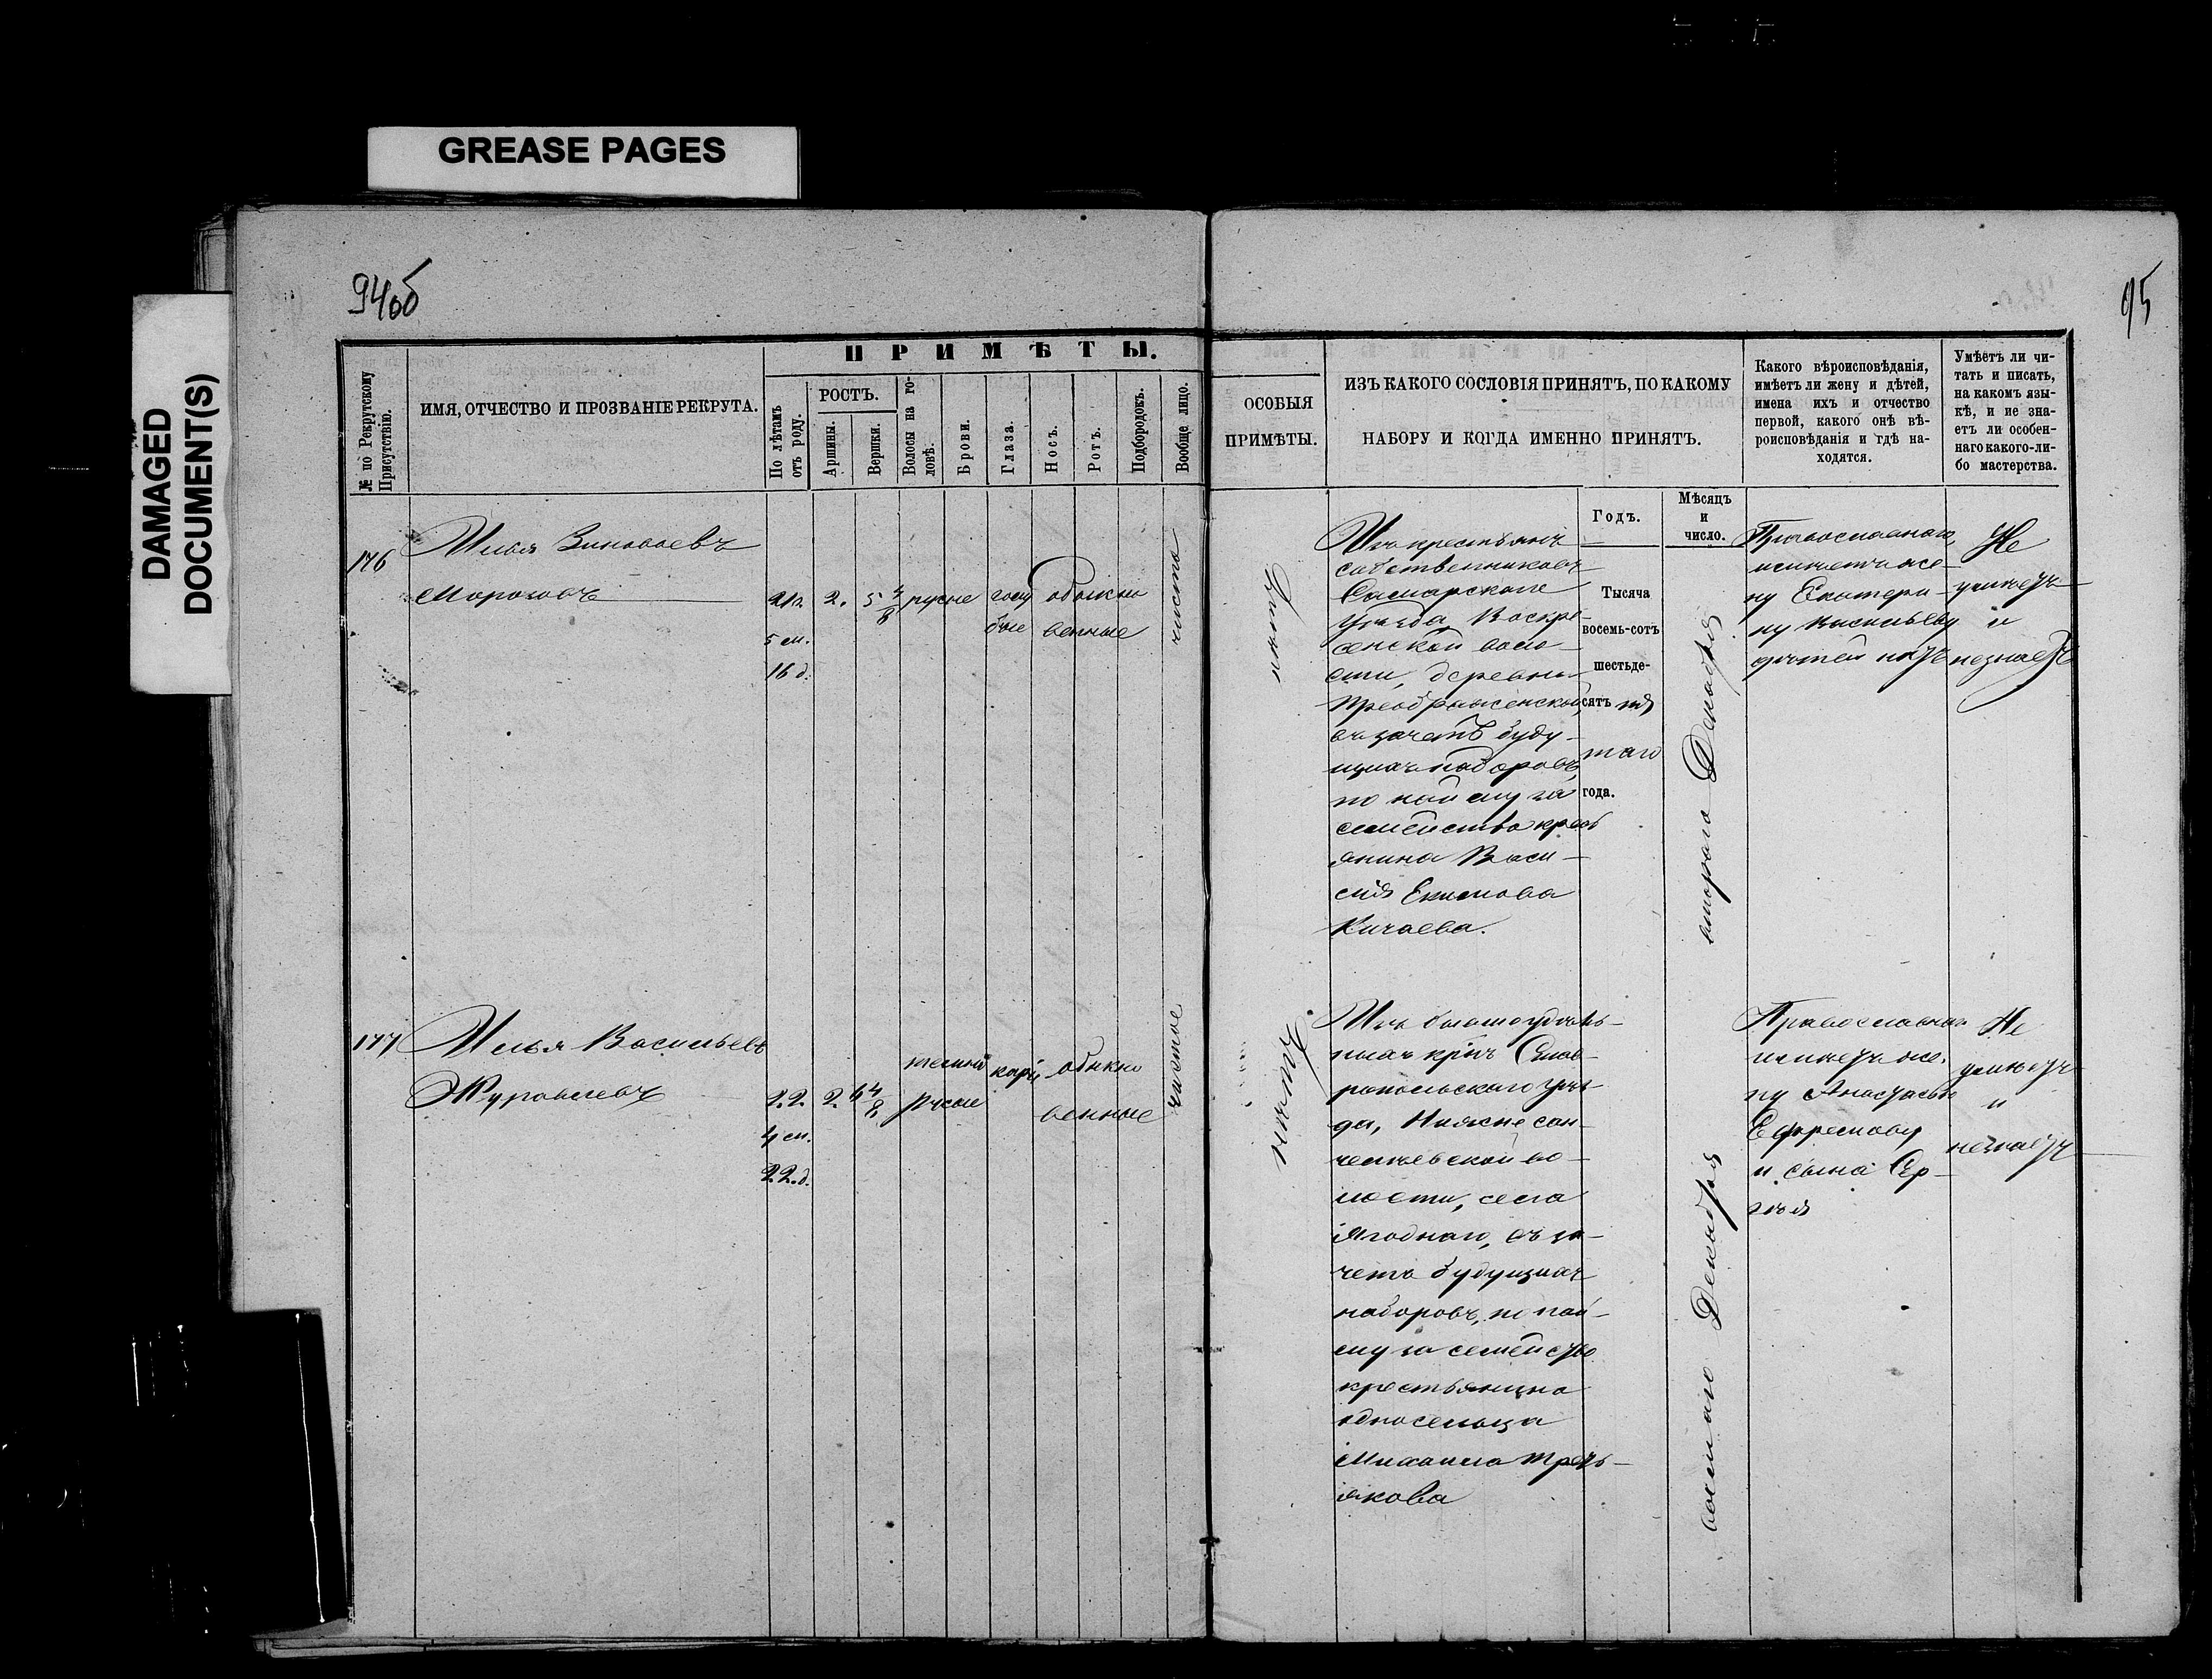 GREASE PAGES
DAMAGED
DOCUMENT(S)
94об
95
ПРИМѢТЫ.
№ по Рекрутскому
Присутствію.
ИМЯ, ОТЧЕСТВО И ПРОЗВАНІЕ РЕКРУТА.
По лѣтамъ
отъ роду.
РОСТЪ.
Аршины.
Вершки.
Волосы на го-
ловѣ.
Брови.
Глаза.
Носъ.
Ротъ.
Подбородокъ.
Вообще лицо.
ОСОБЫЯ
ПРИМѢТЫ.
ИЗЪ КАКОГО СОСЛОВІЯ ПРИНЯТЪ, ПО КАКОМУ
НАБОРУ И КОГДА ИМЕННО ПРИНЯТЪ.
Какого вѣроисповѣданія,
имѣетъ ли жену и дѣтей,
имена ихъ и отчество
первой, какого онѣ вѣ-
роисповѣданія и гдѣ на-
ходятся.
Умѣетъ ли чи-
тать и писать,
на какомъ язы-
кѣ, и не зна-
етъ ли особен-
наго какого-ли-
бо мастерства.
Годъ.
Мѣсяцъ
и
число.
176
Илья Зиновьевъ
Морозовъ
21 г.
5 м.
16 д.
2.
5 4/8
русые
голу
бые
обыкно
венные
чисто
нѣтъ
Изъ крестьянъ
собственниковъ
Самарскаго
Уѣзда, Воскре-
сенской воло-
сти, деревни
Преображенской,
въ зачетъ буду-
щихъ наборовъ,
по найму за
семейство крест
янина Васи-
лія Екимова
Кичаева.
Тысяча
восемь-сотъ
шестьде-
сятъ пя
таго
года.
втораго Декабря
Православнаго,
имѣетъ же-
ну Екатери-
ну Васильеву
дѣтей нѣтъ
Не
умѣетъ
и
незнаетъ
177
Илья Васильевъ
Журавлевъ
22.
4 м.
22. д.
2.
6 4/8
темно
русые
каріе
обыкно
венные
чистое
нѣтъ.
Изъ бывшихъ удѣль-
ныхъ крнъ Став-
ропольскаго уѣз-
да, Нижнесан-
челеевской во-
лости, села
Ягоднаго, въ за-
четъ будущихъ
наборовъ, по най-
му за семейство
крестьянина
односельца
Михаила Треть-
якова
восьмаго Декабря
Православнаго
имѣетъ же-
ну Анастасью
Ефремову
и сына Сер-
гѣя
Не
умѣетъ
и
незнаетъ